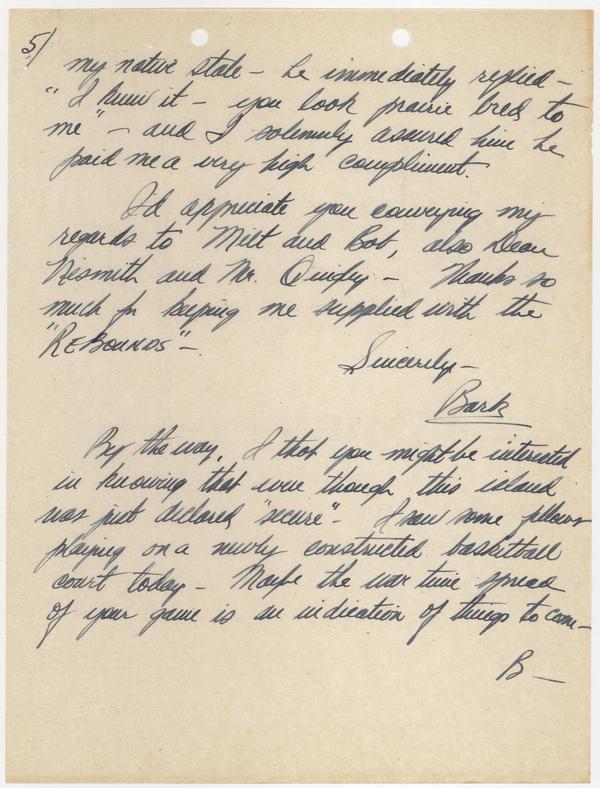 5/
my native state - he immediately replied -
"I knew it - you look prairie bred to
me" - and I solemnly assured him he
paid me a very high compliment.
I'd appreciate you conveying my
regards to Milt and Bob, also Dean
Nesmith and Mr. Quigly - Thanks so
much for keeping me supplied with the
"REBOUNDS" -
Sincerely -
Bark
By the way, I thot you might be interested
in knowing that even though this island
was just declared "secure" - I saw some fellows
playing on a newly constructed basketball
court today - Maybe the war time spread
of your game is an indication of things to come -
B -